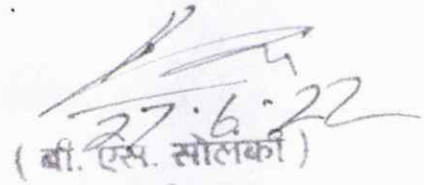 27.6.22
( बी. एस. सोलंकी )